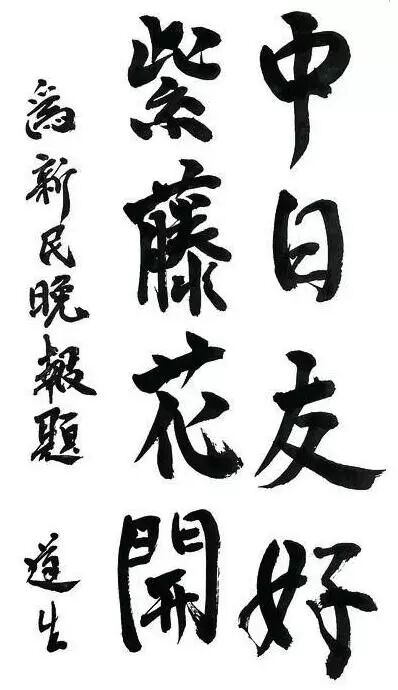 中日友好
紫藤花開
為新民晚報題 道生